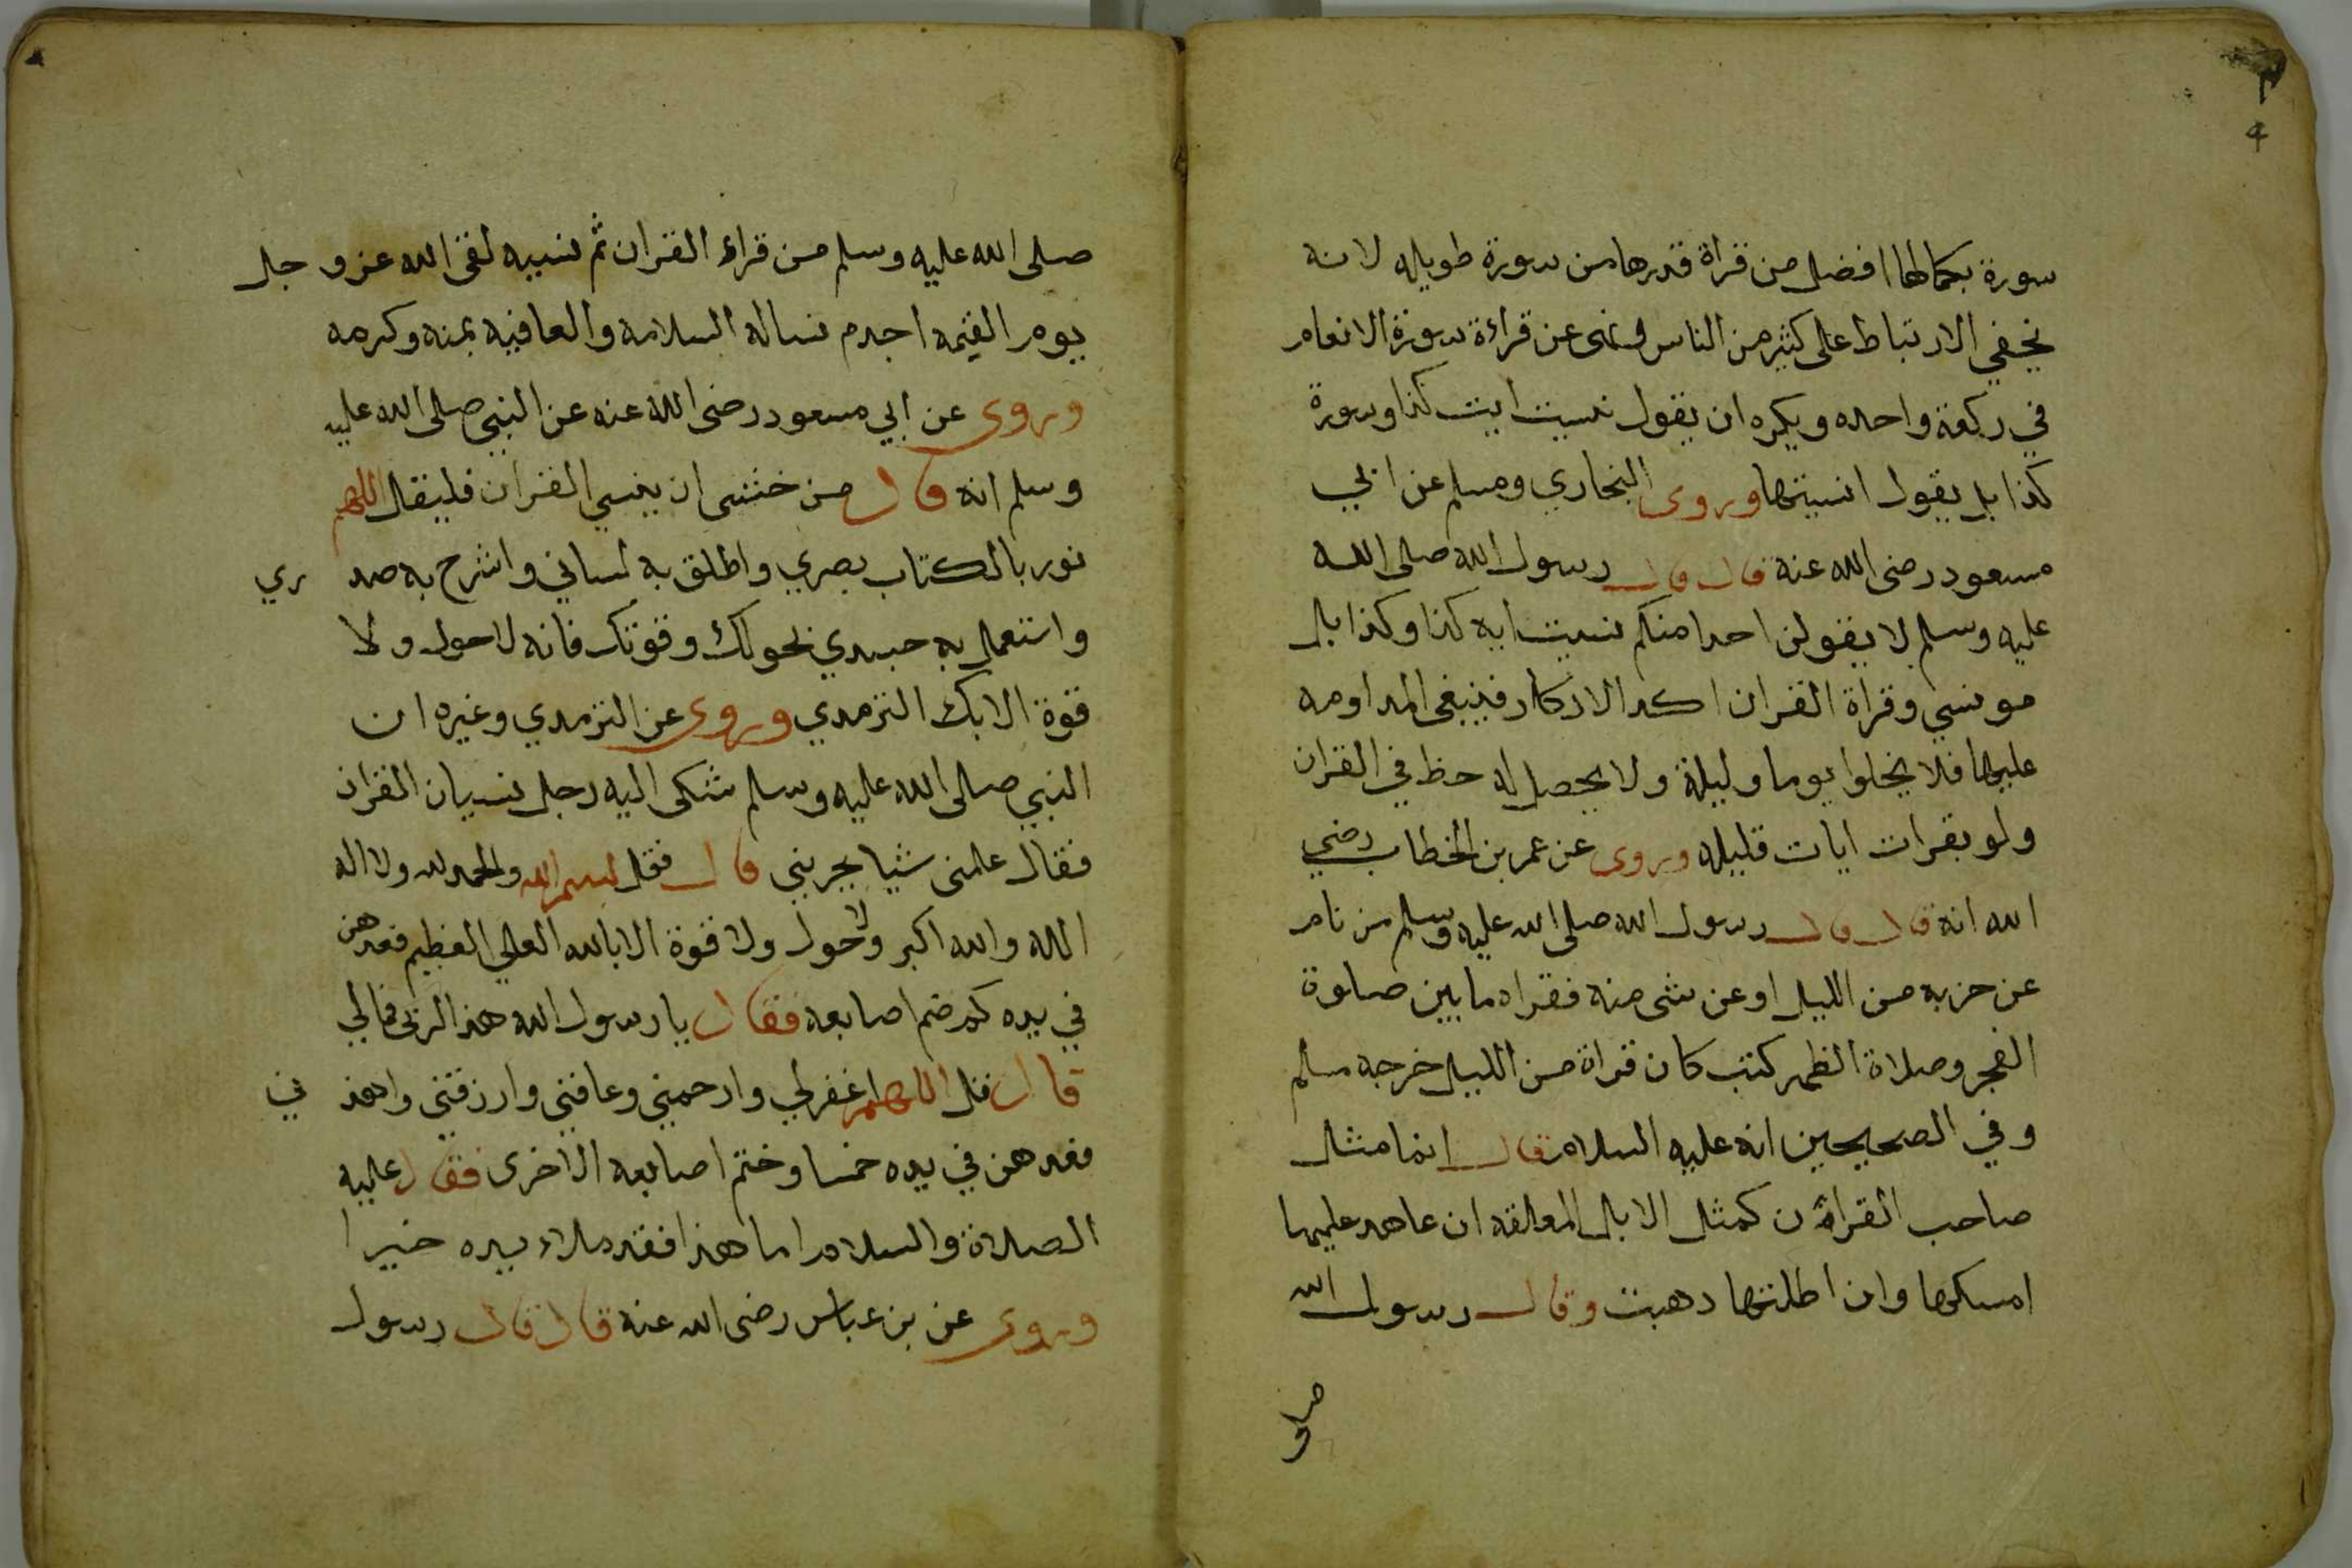 4
سورة بكمالها افضل من قراة قدرها من سورة طويله لانه
يخفي الارتباط على كثير من الناس و نهى عن قراءة سورة الانعام
في ركعة واحده ويكره ان يقول نسيت ايت كذا وسورة
كذا بل يقول انسيتها وروى البخاري ومسلم عن ابي
مسعود رضى الله عنه قال قال رسول الله صلى الله
عليه وسلم لا يقولن احدا منكم نسيت ايه كذا وكذا بل
هو نسي وقراة القران اكد الاذكار فينبغى المداومه
عليها فلا يخلوا يوما وليلة ولا يحصل له حظ في القران
ولو بقرات ايات قليله وروى عن عمر بن الخطاب رضي
الله انه قال قال رسول الله صلى الله عليه وسلم من نام
عن حزبه من الليل او عن شى منه فقراه ما بين صلوة
الفجر وصلاة الظهر كتب كان قراة من الليل خرجه مسلم
وفي الصحيحين انه عليه السلام قال انما مثل
صاحب القران كمثل الابل المعلقه ان عاهد عليها
امسكها وان اطلقها دهبت وقال رسول الله
صلى
صلى الله عليه وسلم من قراء القران ثم نسيه لقى الله عز وجل
يوم القيمه اجدم نساله السلامه والعافيه بمنه وكرمه
وروى عن ابي مسعود رضى الله عنه عن النبي صلى الله عليه
وسلم انه قال من خشى ان ينسي القران فليقل اللهم
نور بالكتاب بصري واطلق به لساني واشرح به صدري
واستعمل به جسدي بحولك وقوتك فانه لا حول ولا
قوة الا بك الترمدي وروى عن الترمدي وغيره ان
النبي صلى الله عليه وسلم شكى اليه رجل نسيان القران
فقال علمنى شيا يجزيني قال فقل بسم الله والحمد لله ولا اله
الا الله والله اكبر ولا حول ولا قوة الا بالله العلي العظيم فعدهن
في يده ضم اصابعه فقال يا رسول الله هذا لربى فما لي
قال قل اللهم اغفر لي وارحمني وعافني وارزقني واهدني
فعدهن في يده خمسا وختم اصابعه الاخرى فقال عليه
الصلاة والسلام اما هذا فقد ملاء يده خيرا
وروى عن بن عباس رضى الله عنه قال قال رسول